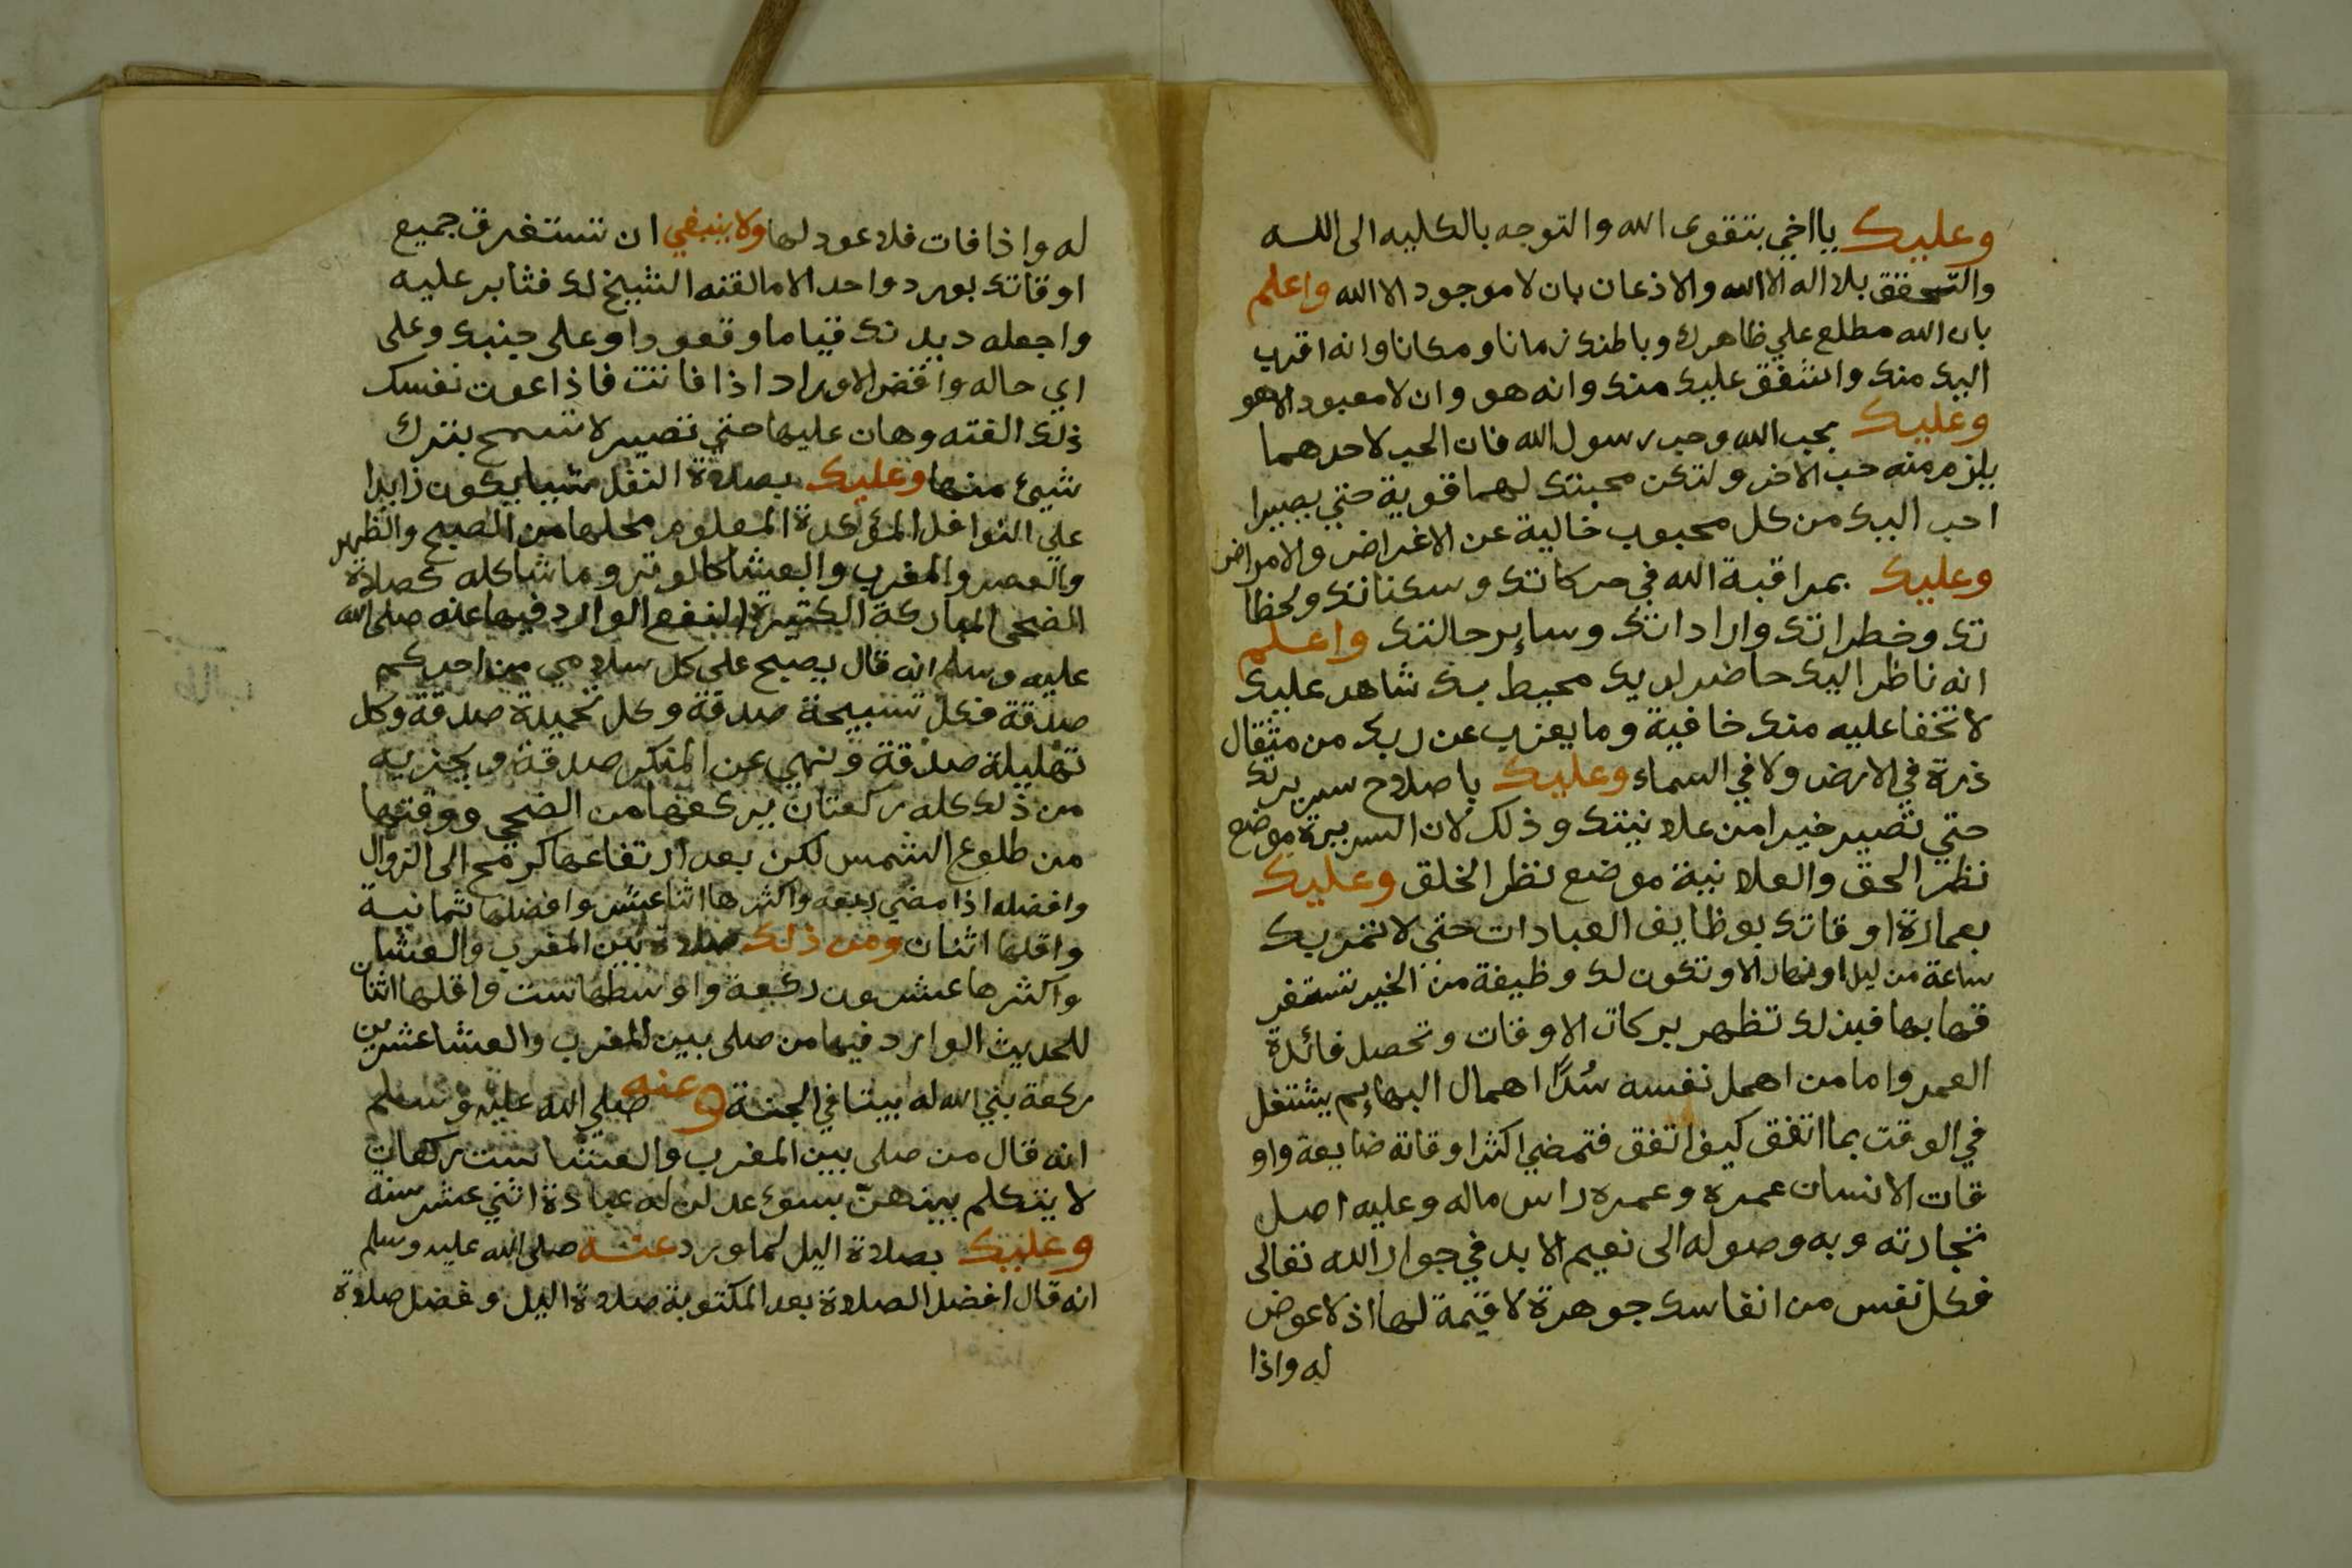 وعليك يا اخي بتقوى الله والتوجه بالكليه الى الله
والتحقق بلا اله الا الله والاذعان بان لا موجود الا الله واعلم
بان الله مطلع علي ظاهرك وباطنك زمانا ومكانا وانه اقرب
اليك منك واشفق عليك منك وانه هو وان لا معبود الا هو
وعليك بحب الله وحب رسول الله فان الحب لاحدهما
يلزم منه حب الاخر ولتكن محبتك لهما قوية حتي يصيرا
احب اليك من كل محبوب خالية عن الاغراض والامراض
وعليك بمراقبة الله في حركاتك وسكناتك ولحظا
تك وخطراتك واراداتك وساير حالتك واعلم
انه ناظر اليك حاضر لديك محيط بك شاهد عليك
لا تخفا عليه منك خافية وما يعزب عن ربك من مثقال
ذرة في الارض ولا في السماء وعليك باصلاح سريرتك
حتي تصير خيرا من علانيتك وذلك لان السريرة موضع
نظر الحق والعلانية موضع نظر الخلق وعليك
بعمارة اوقاتك بوظايف العبادات حتي لا تمر بك
ساعة من ليل او نهار الا وتكون لك وظيفة من الخير تستغر
قها بها فبذلك تظهر بركات الاوقات وتحصل فائدة
العمر واما من اهمل نفسه سُدًا اهمال البهايم يشتغل
في الوقت بما اتفق كيف اتفق فتمضي اكثر اوقاته ضايعة واو
قات الانسان عمره وعمره راس ماله وعليه اصل
تجارته وبه وصوله الى نعيم الابد في جوار الله تعالى
فكل نفس من انفاسك جوهرة لا قيمة لها اذ لا عوض
له واذا
له واذا فات فلا عود لها ولا ينبغي ان تستغرق جميع
اوقاتك بورد واحد الا ما لقنه الشيخ لك فثابر عليه
واجعله ديدنك قياما وقعودا وعلى جنبك وعلى
اي حاله واقض الاوراد اذا فاتت فاذا عودت نفسك
ذلك الفته وهان عليها حتي تصير لا تسمح بترك
شيئ منها وعليك بصلاة النفل شيا يكون زايدا
علي النوافل المؤكدة المعلوم محلها من الصبح والظهر
والعصر والمغرب والعشا كالوتر وما شاكله كصلاة
الضحى المباركة الكثيرة النفع الوارد فيها عنه صلى الله
عليه وسلم انه قال يصبح على كل سلامي من احدكم
صدقة فكل تسبيحة صدقة وكل تحميدة صدقة وكل
تهليلة صدقة ونهي عن المنكر صدقة ويجزيه
من ذلك كله ركعتان يركعها من الضحي ووقتها
من طلوع الشمس لكن بعد ارتفاعها كرمح الى الزوال
وافضله اذا مضي ربعه واكثرها اثنا عشر وافضلها ثمانية
واقلها اثنان ومن ذلك صلاة بين المغرب والعشا
واكثرها عشرون ركعة واوسطها ست واقلها اثنان
للحديث الوارد فيها من صلى بين المغرب والعشا عشرين
ركعة بني الله له بيتا في الجنة وعنه صلي الله عليه وسلم
انه قال من صلى بين المغرب والعشا ست ركعات
لا يتكلم بينهن بسوء عدلن له عبادة اثني عشر سنه
وعليك بصلاة اليل لما ورد عنه صلى الله عليه وسلم
انه قال افضل الصلاة بعد المكتوبة صلاة اليل وفضل صلاة